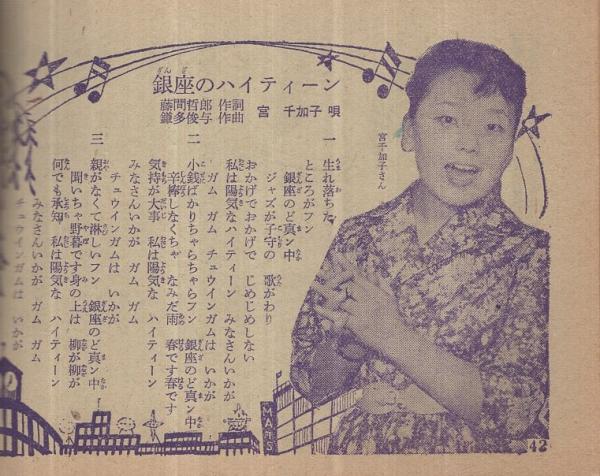 銀座のハイティーン
藤間哲郎 作詞
鎌多俊与 作曲
宮 千加子 唄
宮千加子さん
一 生れ落ちた
ところがフン
銀座のど真ン中
ジャズが子守の 歌がわり
おかげでおかげで じめじめしない
私は陽気なハイティーン みなさんいかが
ガム ガム チュウインガムは いかが
二 小銭ばかりちゃらちゃらフン 銀座のど真ン中
辛棒しなくちゃ なみだ雨 春です春です
気持が大事 私は陽気な ハイティーン
みなさんいかが ガム ガム
チュウインガムは いかが
三 親がなくて淋しいフン 銀座のど真ン中
聞いちゃ野暮です身の上は 柳が柳が
何でも承知 私は陽気な ハイティーン
みなさんいかが ガム ガム
チュウインガムは いかが
MATS
42